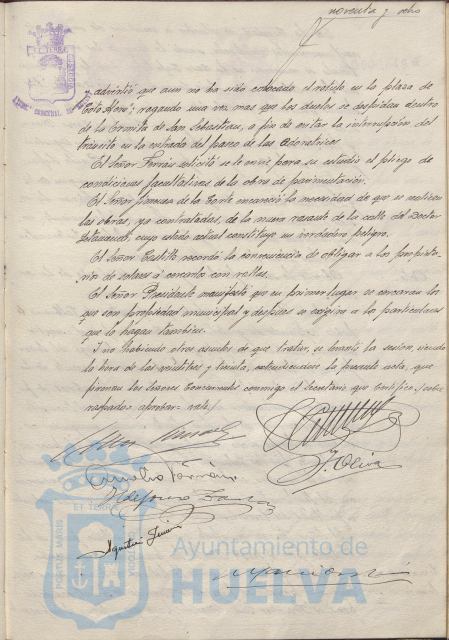 noventa y ocho
advirtió que aun no ha sido colocado el rotulo en la plaza de
"Coto Mora"; rogando una vez mas que los duelos se despidan dentro
de la Ermita de San Sebastian, a fin de evitar la interrupción del
tránsito en la entrada del paseo de las Adoratrices.
El Señor Terrás solicitó se le envie para su estudio el pliego de
condiciones facultativas de la obra de pavimentación.
El Señor de la Corte encareció la necesidad de que se realicen
las obras, ya contratadas, de la nueva rasante de la calle del Doctor
cuyo estado actual constituye un verdadero peligro.
El Señor Castillo recordó la conveniencia de obligar a los propieta-
rios de solares a cercarlos con vallas.
El Señor Presidente manifestó que en primer lugar se cercaran los
que son propiedad municipal y despues se exigira a los particulares
que lo hagan tambien.
Y no habiendo otros asuntos de que tratar, se levantó la sesion, siendo
la hora de las veintitres y treinta, extendiendose la presente acta, que
firman los señores Concurrentes conmigo el Secretario que certifico./sobre
raspado= aprobar= vale/
J. Oliva
Agustin
ET TERRÆ
PORTUS MARIS
CUSTODIA
Ayuntamiento de
HUELVA